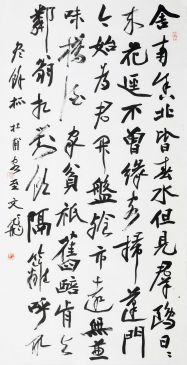 舍南舍北皆春水但見羣鷗日日
來花徑不曾緣客掃蓬門
今始為君開盤飧市遠無兼
味樽酒家貧祇舊醅肯與
鄰翁相對飲隔籬呼取
盡餘杯 杜甫客至 文